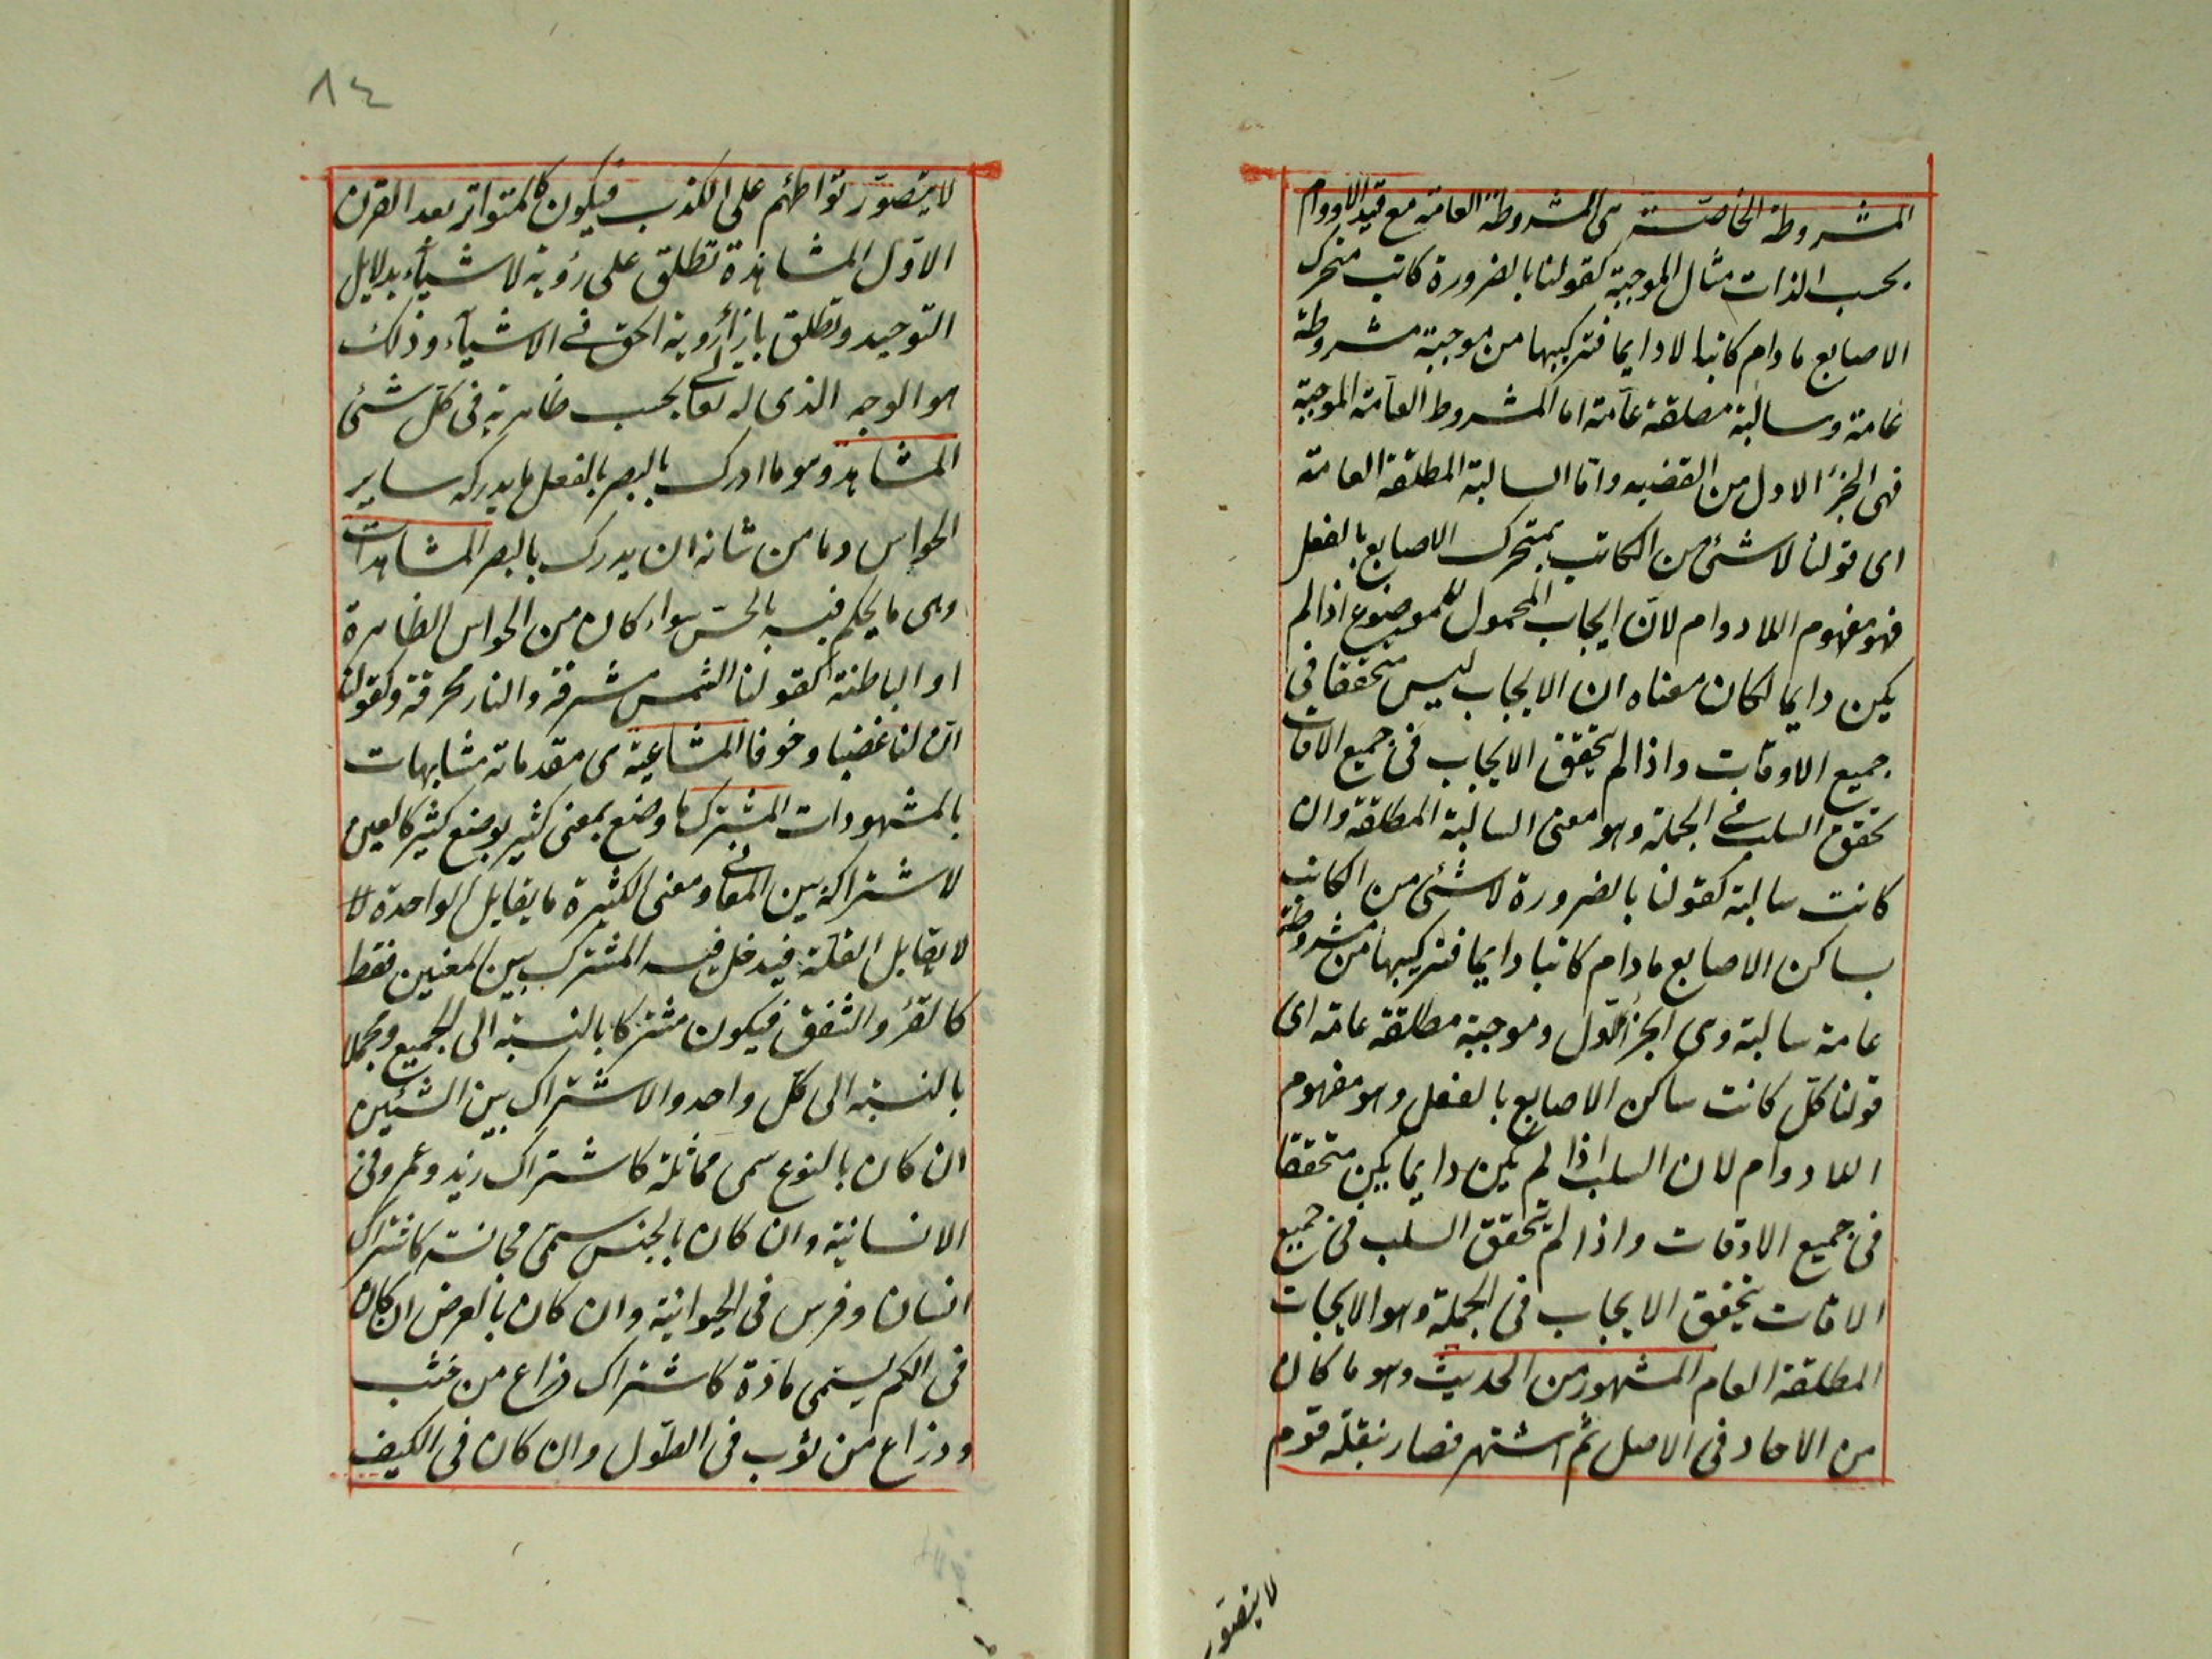 المشروطة الخاصة هى المشروطة العامة مع قيد اللادوام
بحسب الذات مثال الموجبة كقولنا بالضرورة كاتب متحرك
الاصابع مادام كاتبا لا دايما فتركيبها من موجبة مشروطة
عامة وسالبة مطلقة عامة اما المشروط العامة الموجبة
فهى الجزء الاول من القضيه واما السالبة المطلقة العامة
اى قولنا لا شئ من الكاتب بمتحرك الاصابع بالفعل
فهو مفهوم اللادوام لان ايجاب المحمول للموضوع اذا لم
يكن دايما لكان معناه ان الايجاب ليس متحققا فى
جميع الاوقات واذا لم يتحقق الايجاب فى جميع الاقات
تحقق السلب فى الجملة وهو معنى السالبة المطلقة وان
كانت سالبة كقولنا بالضرورة لا شئ من الكاتب
بساكن الاصابع مادام كاتبا دايما فتركيبها من مشروطة
عامة سالبة وهى الجزء الاول وموجبة مطلقة عامة اى
قولنا كل كانت ساكن الاصابع بالفعل وهو مفهوم
اللادوام لان السلب اذا لم يكن دايما يكن متحققا
فى جميع الاوقات واذا لم يتحقق السلب فى جميع
الاقات يتحقق الايجاب فى الجملة وهو الايجاب
المطلقة العام المشهور من الحديث وهو ما كان
من الاحاد فى الاصل ثم اشتهر فصار بنقله قوم
لا يتصور
٨٤
لا يتصور تواطئهم على الكذب فيكون كالمتواتر بعد القرن
الاول المشاهدة تطلق على رؤية لاشياء بدلايل
التوحيد وتطلق بازاء رؤية الحق فى الاشياء وذلك
هو الوجه الذى له تعالى بحسب ظاهريته فى كل شئ
المشاهد وهو ما ادرك بالبصر بالفعل ما يدركه ساير
الحواس وما من شانه ان يدرك بالبصر المشاهدات
وهى ما يحكم فيه بالحس سواء كان من الحواس الظاهرة
او الباطنة كقولنا الشمس مشرقة والنار محرقة وكقولنا
ان لنا غضبا وخوفا المشاغبة هى مقدماته مشابهات
بالمشهودات المشترك ما وضع بمعنى كثير بوضع كثير كالعين
لاشتراكه بين المعانى ومعنى الكثيرة ما يقابل الواحدة لا
لا يقابل القلة فيدخل فيه المشترك بين المعنين فقط
كالقرء والشفق فيكون مشتركا بالنسبة الى الجميع ومجملا
بالنسبة الى كل واحد والاشتراك بين الشيئين
ان كان بالنوع سمى مماثلة كاشتراك زيد وعمرو فى
الانسانية وان كان بالجنس سمى مجانسة كاشتراك
انسان وفرس فى الحيوانية وان كان بالعرض ان كان
فى الكم يسمى مادة كاشتراك ذراع من خشب
وذراع من ثوب فى الطول وان كان فى الكيف